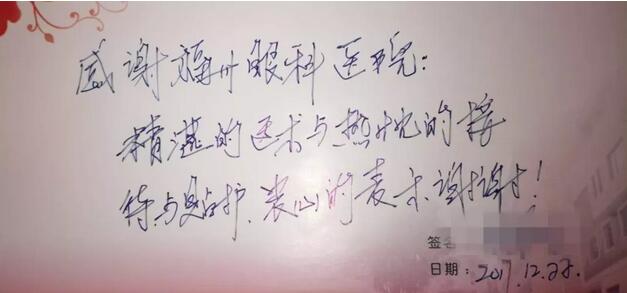 感谢福州眼科医院:
精湛的医术与热忱的接
待与贴护,衷心的表示谢谢!
签名
日期: 2017.12.22.